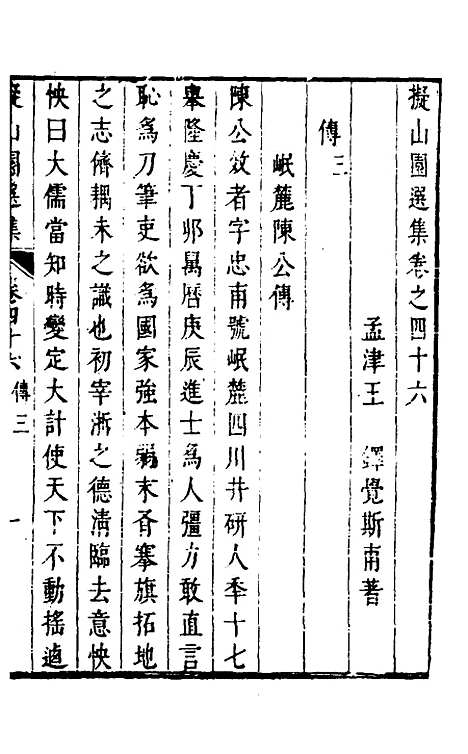 擬山園選集卷之四十六
孟津王　鐸覺斯甫著
傳三
岷麓陳公傳
陳公效者字忠甫號岷麓四川井研人年十七
舉隆慶丁卯萬曆庚辰進士爲人彊方敢直言
恥爲刀筆吏欲爲國家強本弱末有搴旗拓地
之志儕耦未之識也初宰浙之德清臨去意怏
怏曰大儒當知時變定大計使天下不動搖迺
擬山園選集
卷四十六　傳三
一